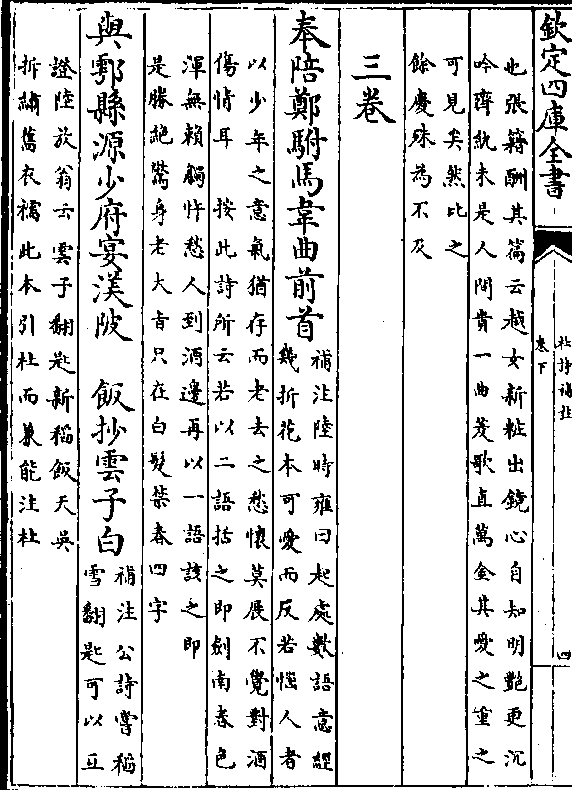 欽定四庫全書
杜詩補註
卷下
四
也張籍酬其篇云越女新粧出鏡心自知明艷更沉
吟齊紈未是人間貴一曲菱歌直萬金其愛之重之
可見矣然比之
餘慶殊為不及
三卷
奉陪鄭駙馬韋曲前首
補注陸時雍曰起處數語意經
幾折花本可愛而反若惱人者
以少年之意氣猶存而老去之愁懷莫展不覺對酒
傷情耳 按此詩所云若以二語括之即劍南春色
渾無賴觸忤愁人到酒邊再以一語該之即
是勝絶驚身老大旨只在白髮禁春四字
與鄠縣源少府宴渼陂 飯抄雲子白
補注公詩嘗稻
雪翻匙可以互
證陸放翁云雲子翻匙新稻飯天吳
拆繡舊衣襦此本引杜而兼能注杜